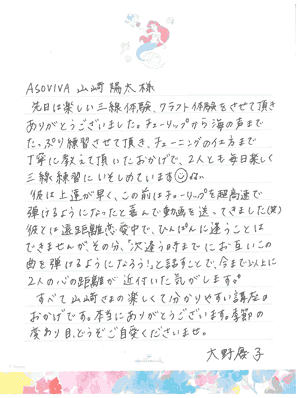 ASOVIVA 山崎 陽太 様
先日は楽しい三線体験、クラフト体験をさせて頂き
ありがとうございました。チューリップから海の声まで
たっぷり練習させて頂き、チューニングの仕方まで
丁寧に教えて頂いたおかげで、2人とも毎日楽しく
三線練習にいそしめています
彼は上達が早く、この前はチューリップを超高速で
弾けるようになったと喜んで動画を送ってきました(笑)
彼とは遠距離恋愛中で、ひんぱんに逢うことは
できませんが、その分、「次逢う時までにお互いこの
曲を弾けるようになろう!」と話すことで、今まで以上に
2人の心の距離が近付いた気がします。
すべて山崎さまの楽しくて分かりやすい講座の
おかげです。本当にありがとうございます。季節の
変わり目、どうぞご自愛くださいませ。
大野 子